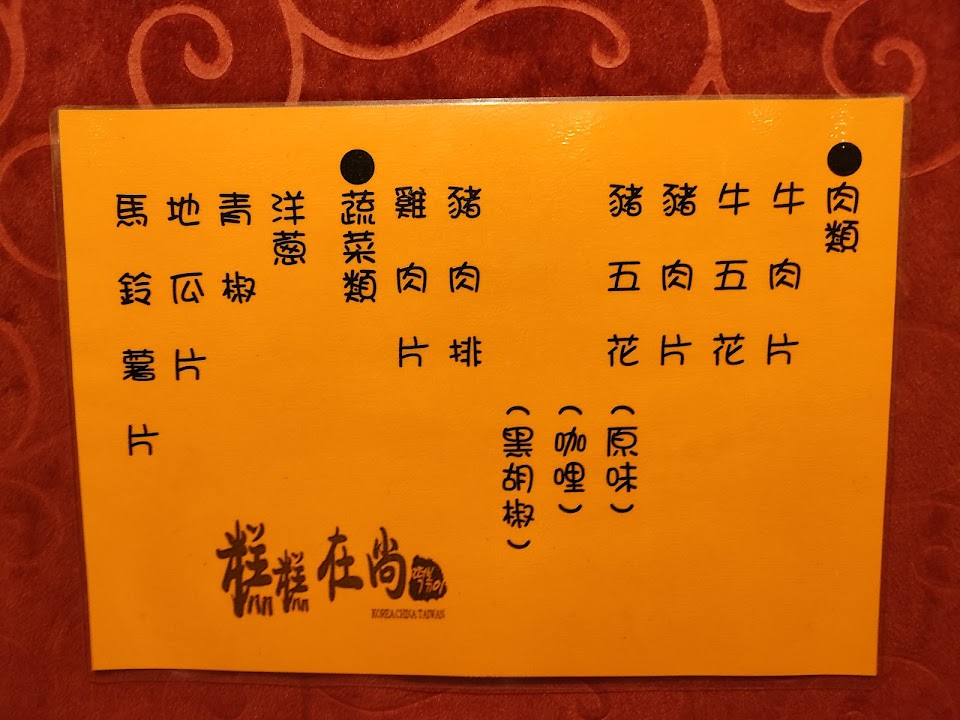 ●肉類
牛肉片
牛五花
豬肉片
豬五花(原味)
(咖哩)
(黑胡椒)
豬肉排
雞肉片
●蔬菜類
洋蔥
青椒
地瓜片
馬鈴薯片
糕糕在尚
KOREA CHINA TAIWAN